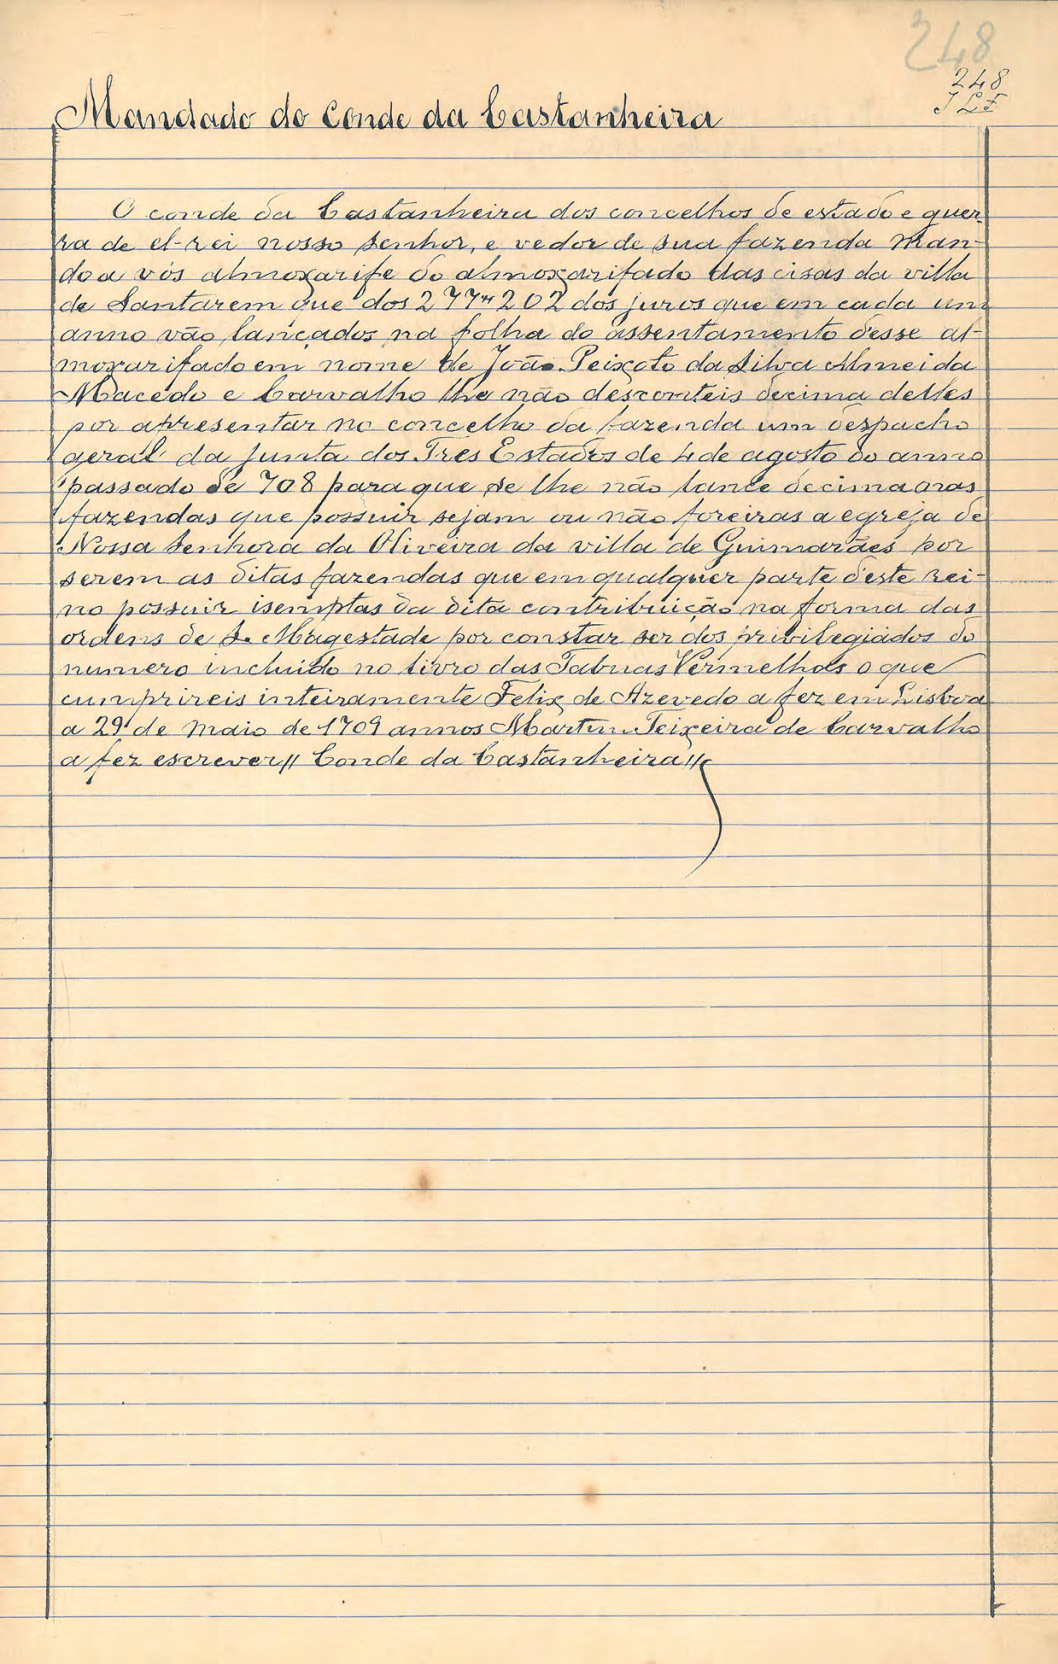 248
248
Mandado do Conde da Castanheira
O conde da Castanheira dos concelhos de estado e guer-
ra de el-rei nosso senhor, e vedor de sua fazenda man-
do a vós almoxarife do almoxarifado das cisas da villa
de Santarem que dos 277#202 dos juros que em cada um
anno vão lançados na folha do assentamento desse al-
moxarifado em nome de João Peixoto da Silva Almeida
Macedo e Carvalho lhe não desconteis decima delles
por apresentar no concelho da fazenda um despacho
geral da Junta dos Tres Estados de 4 de agosto do anno
passado de 708 para que se lhe não lance decima nas
fazendas que possuir sejam ou não foreiras a egreja de
Nossa Senhora da Oliveira da villa de Guimarães por
serem as ditas fazendas que em qualquer parte deste rei-
no possuir isemptas da dita contribuição na forma das
ordens de S. Magestade por constar ser dos privilegiados do
numero incluido no livro das Tabuas Vermelhas o que
cumprireis inteiramente Felix de Azevedo a fez em Lisboa
a 29 de maio de 1709 annos Martim Teixeira de Carvalho
a fez escrever// Conde da Castanheira//